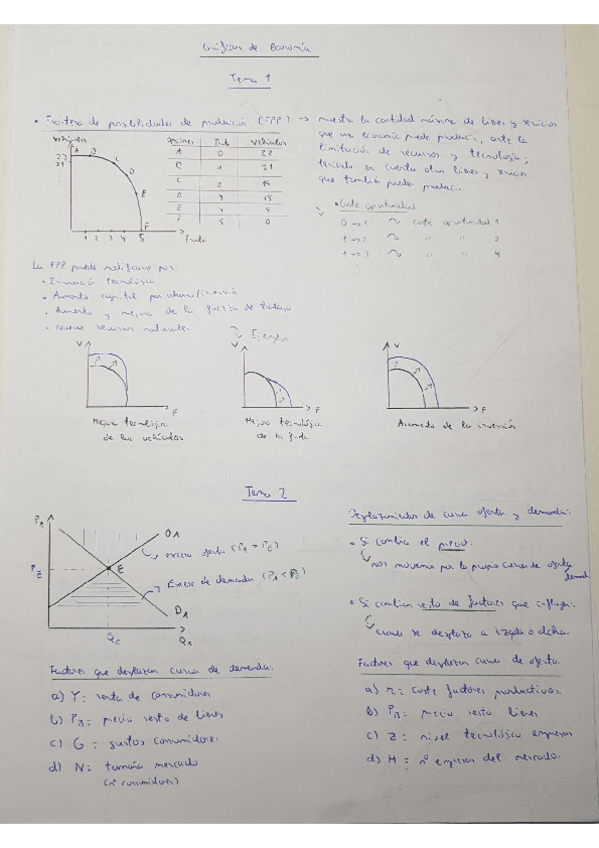 Gráficas de Economía
Tema 1
• Frontera de posibilidades de producción (FPP) → muestra la cantidad máxima de bienes y servicios
que una economía puede producir, ante la
limitación de recursos y tecnología;
teniendo en cuenta otros bienes y
que también puede producir.
vehículos
22
21
A B C D E F
1 2 3 4 5 Fruta
opciones Fruta vehículos
A 0 22
B 1 21
C 2
D 3 15
E 4 9
F 5 0
• Coste oportunidad
0→1 coste oportunidad 1
1→2 " " 2
1→3 " " 4
La FPP puede modificarse por:
• Innovación tecnológica
• Aumento capital por ahorro/inversión
• Aumento y mejora de la fuerza de trabajo
• Nuevos recursos naturales
Ejemplos
V F
Mejora tecnológica
de los vehículos
V F
Mejora tecnológica
de la fruta
V F
Aumento de la inversión
Tema 2
P_A
O_A
exceso oferta (P_A > P_E)
P_E
E
Exceso de demanda (P_A < P_E)
D_A
Q_E Q_A
Desplazamientos de curva oferta y demanda:
• Si cambia el precio:
nos movemos por la propia curva de oferta
demanda
• Si cambian resto de factores que influyen:
curva se desplaza a izqda o dcha.
Factores que desplazan curva de demanda:
a) Y: renta de consumidores
b) P_B: precio resto de bienes
c) G: gustos consumidores
d) N: tamaño mercado
(nº consumidores)
Factores que desplazan curva de oferta.
a) r: coste factores productivos.
b) P_B: precio resto bienes
c) Z: nivel tecnológico empresas
d) H: nº empresas del mercado.